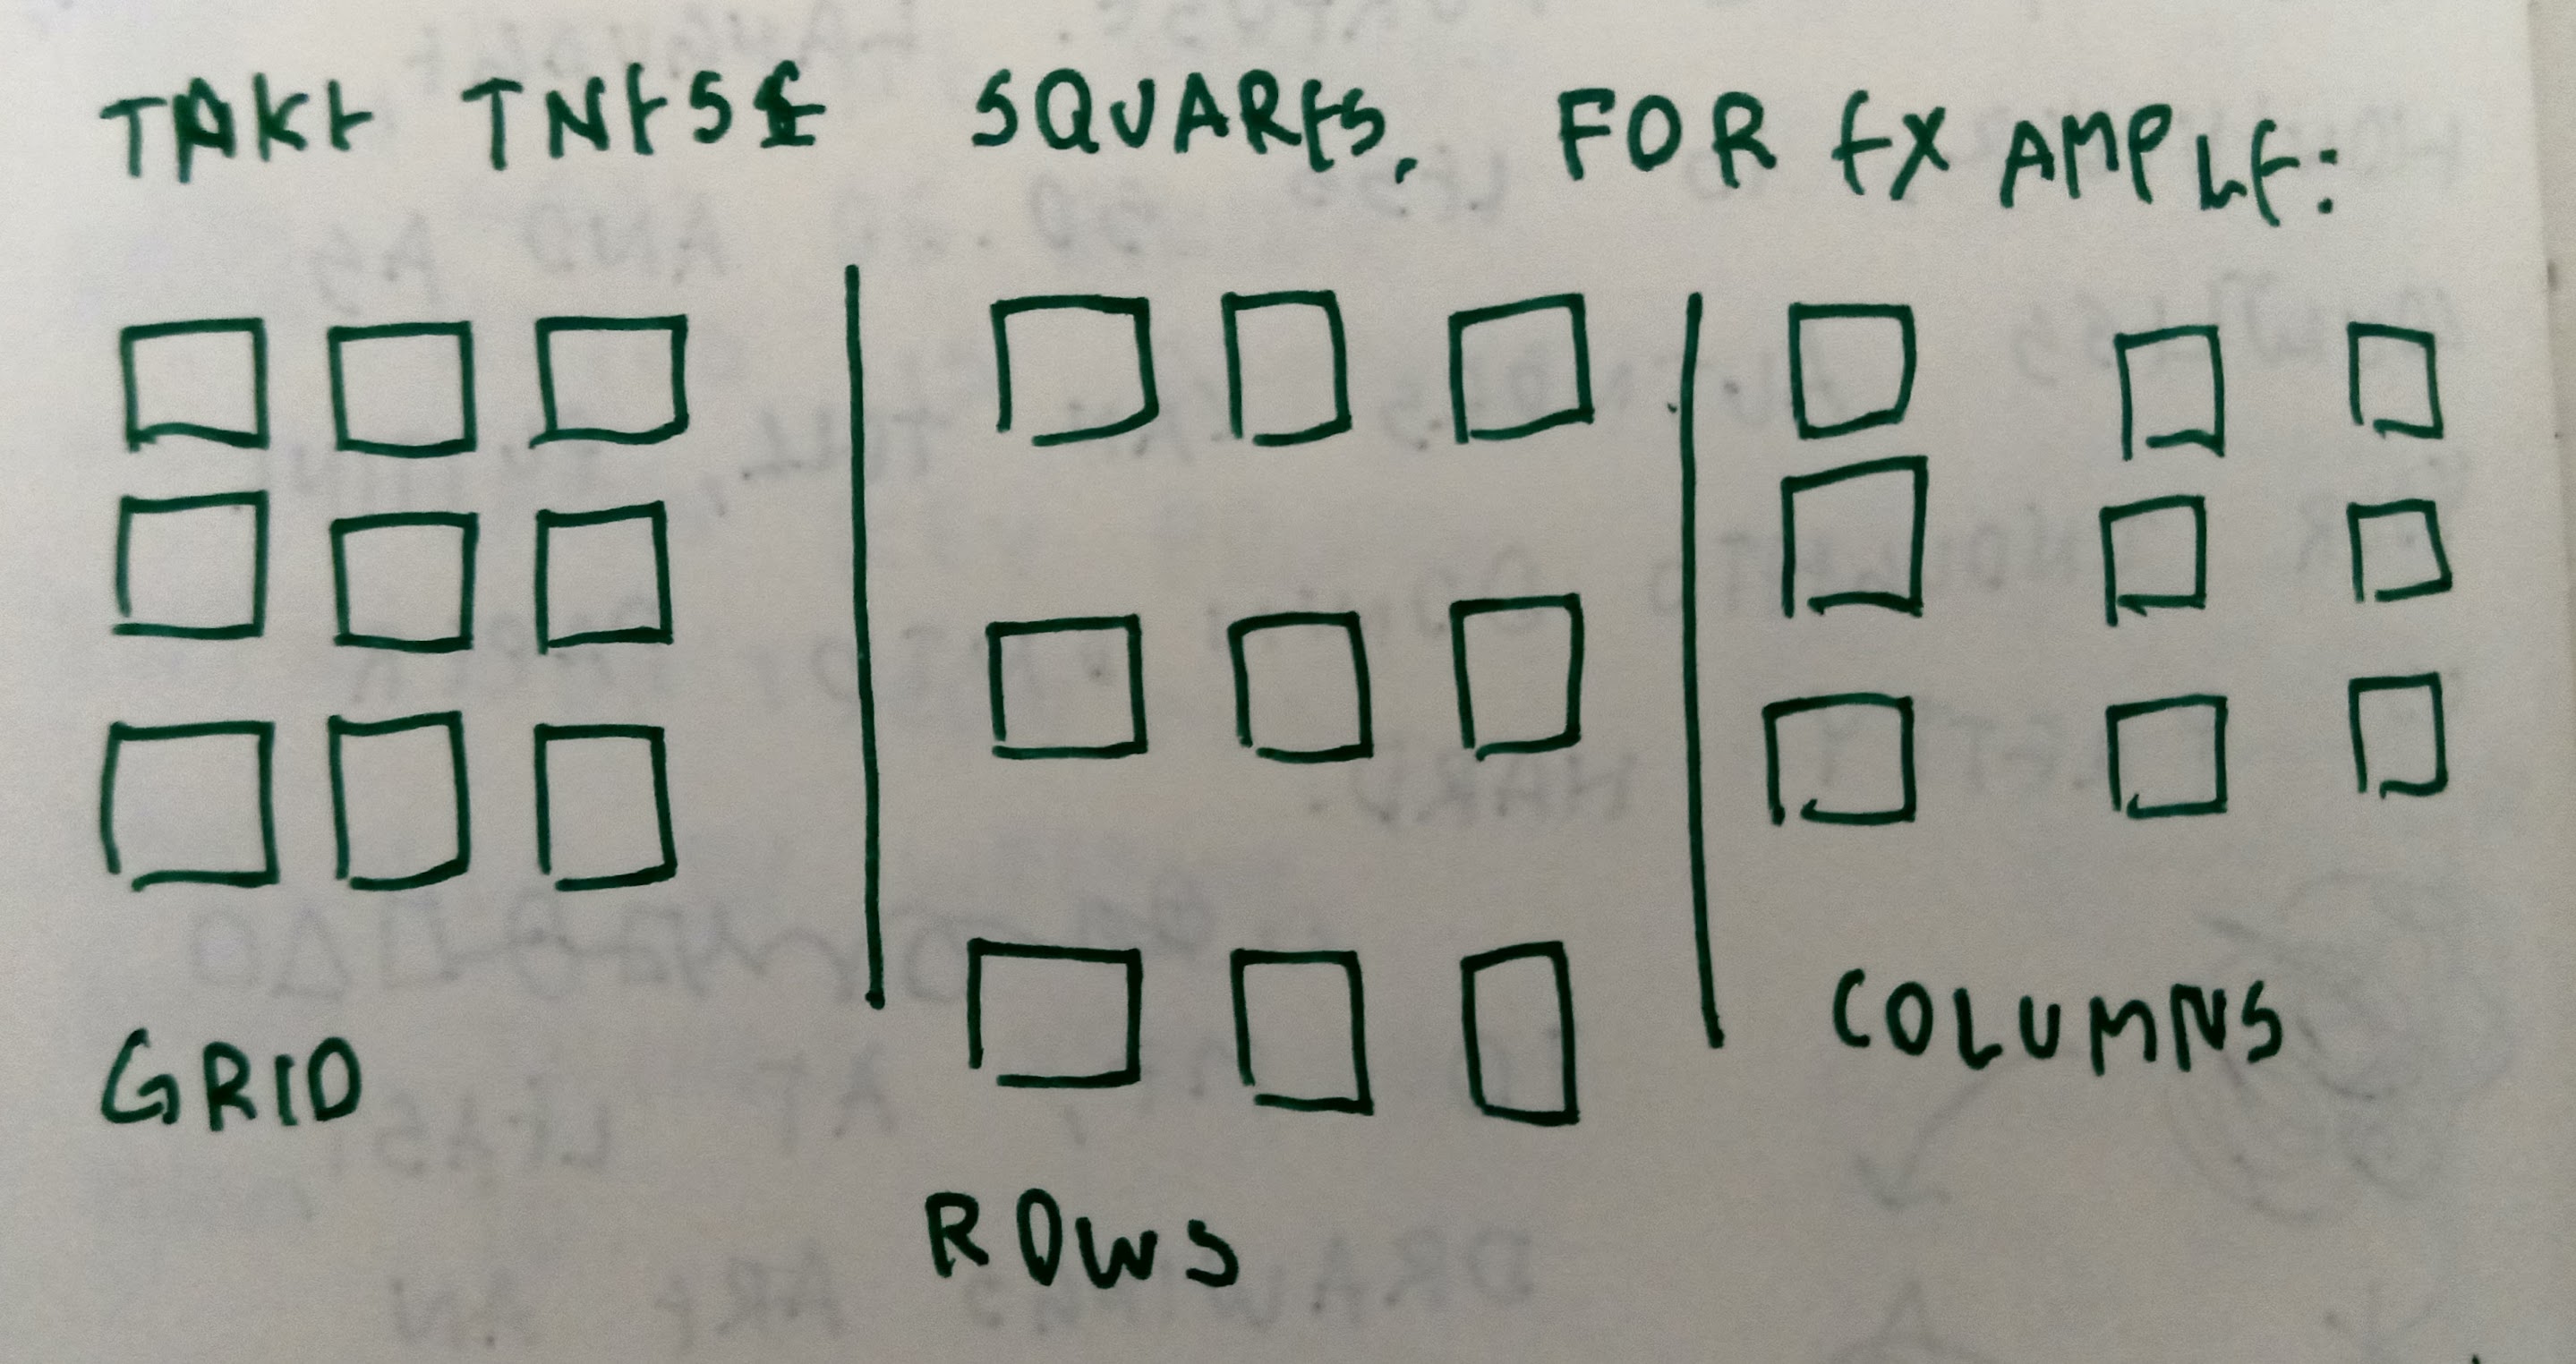 TAKE THESE SQUARES, FOR EXAMPLE:
GRID
ROWS
COLUMNS